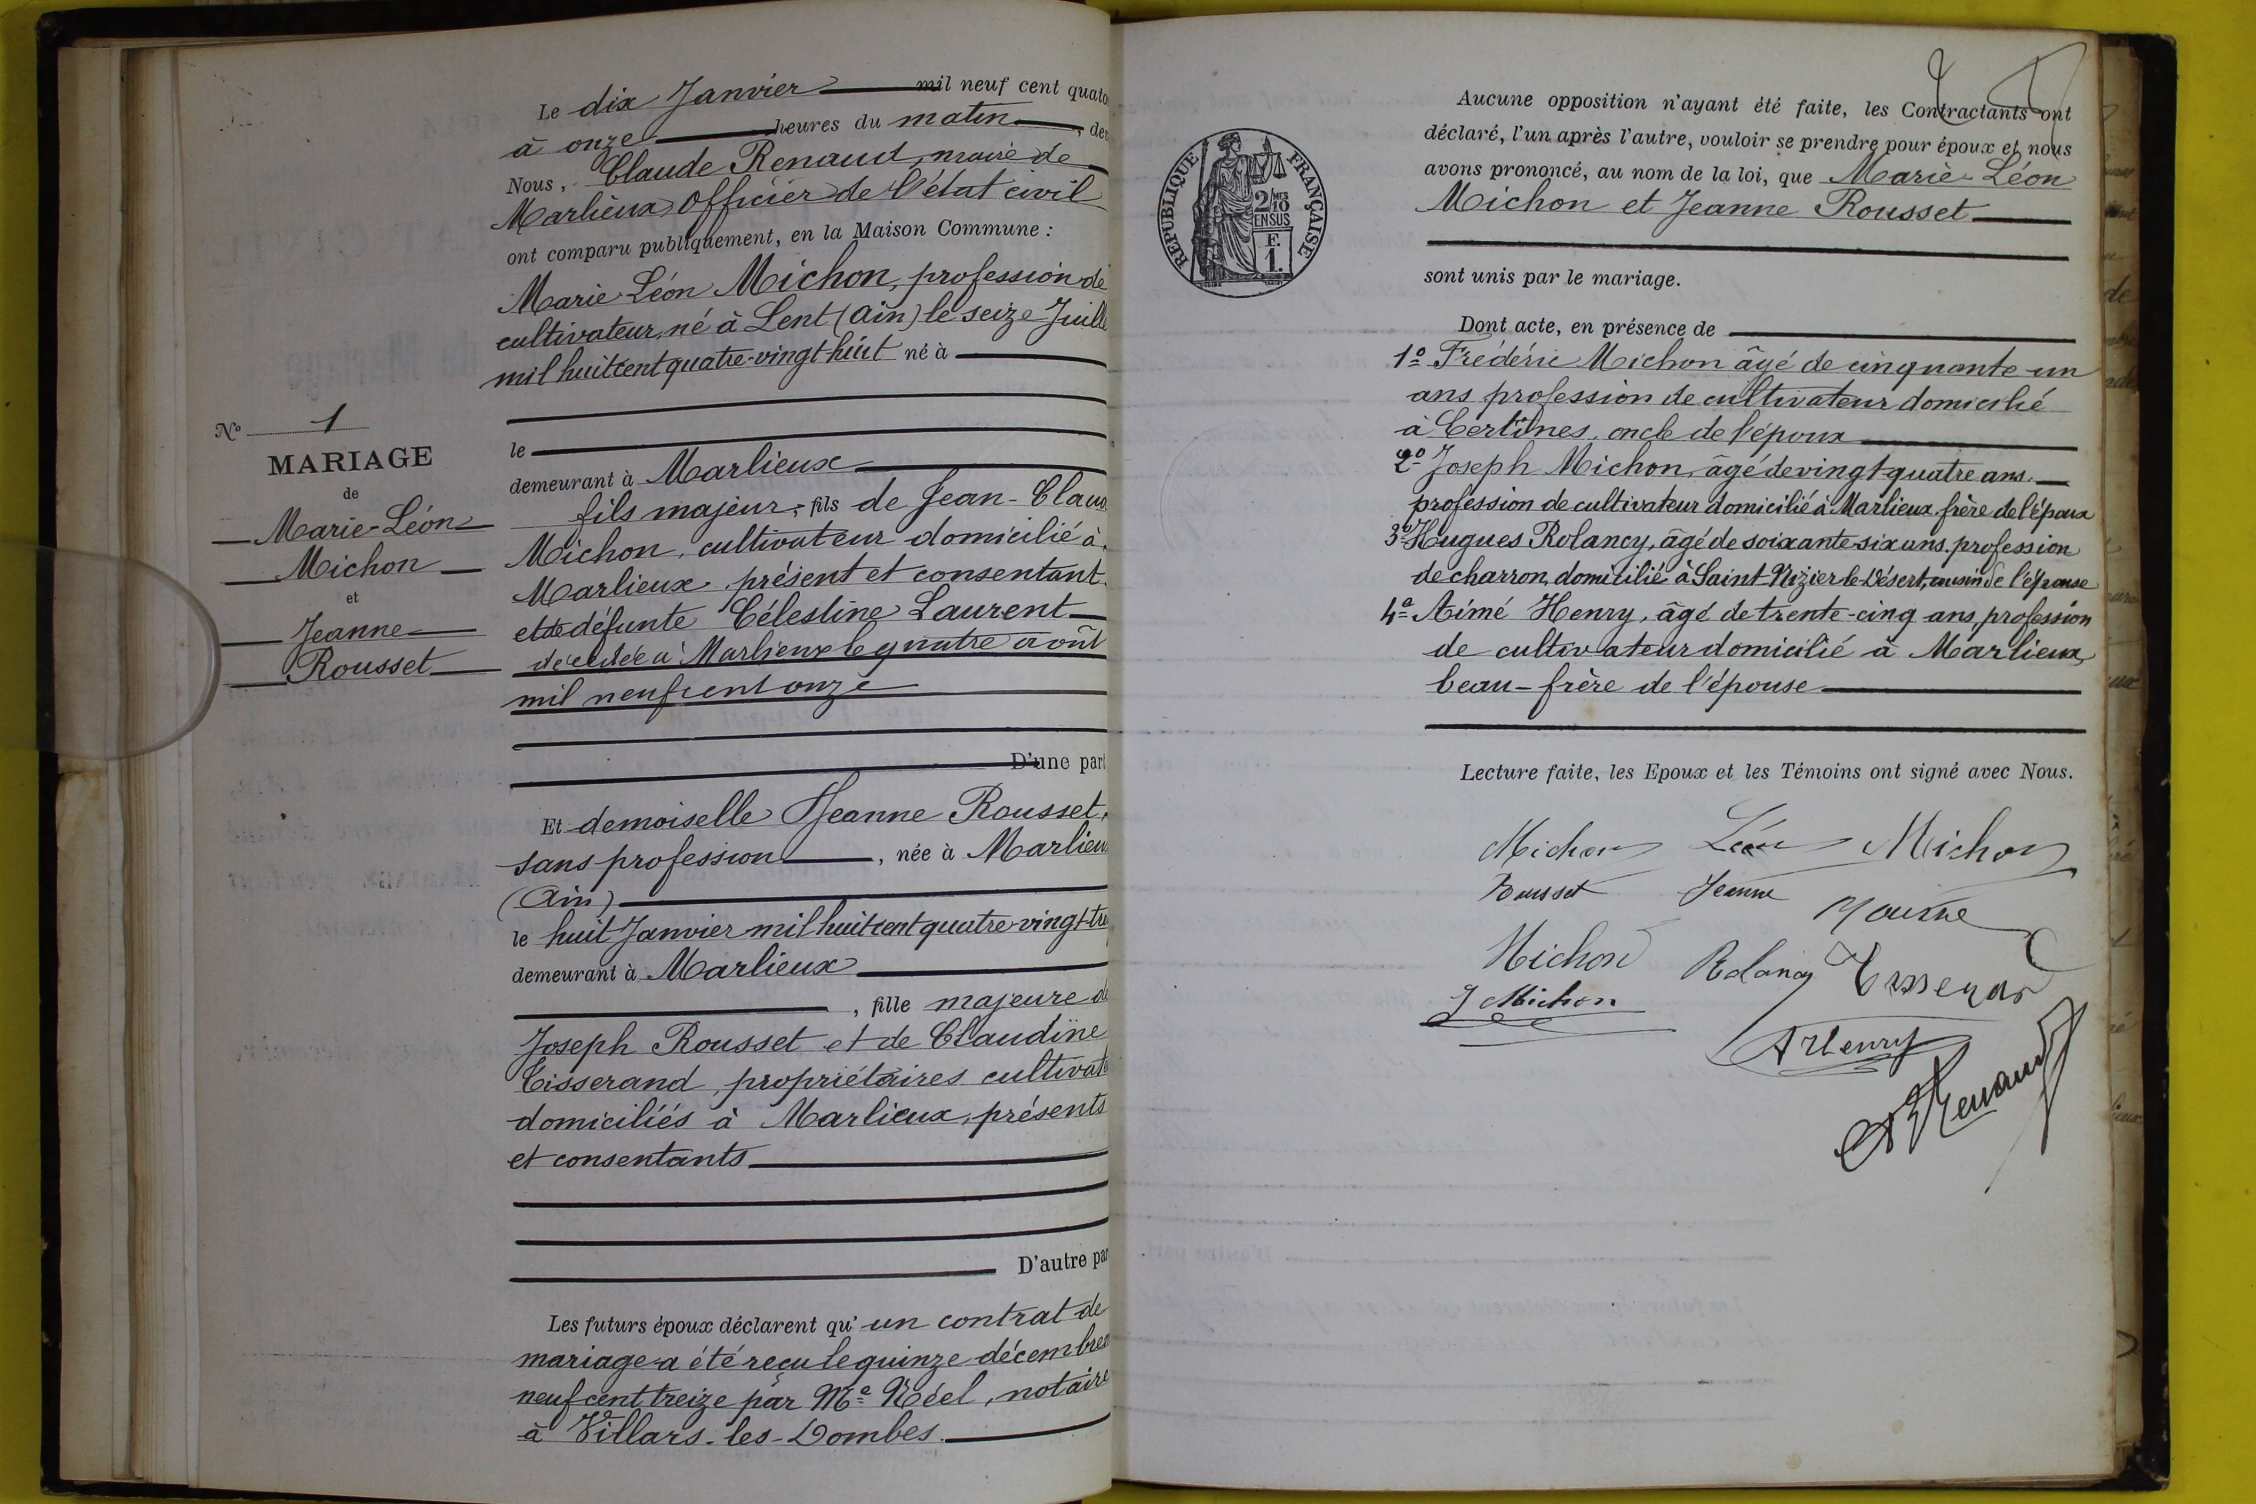 Le dix Janvier mil neuf cent quato
à onze heures du matin, dev
Nous, Claude Renaud, maire de
Marlieux Officier de l'état civil
ont comparu publiquement, en la Maison Commune :
Marie Léon Michon, profession de
cultivateur, né à Lent (Ain) le seize Juille
mil huit cent quatre-vingt huit né à
le
demeurant à Marlieux
fils majeur, fils de Jean-Claud
Michon, cultivateur domicilié à
Marlieux présent et consentant
et de défunte Célestine Laurent
décédée à Marlieux le quatre août
mil neuf cent onze
D'une part
Et demoiselle Jeanne Rousset,
sans profession, née à Marlieux
(Ain)
le huit Janvier mil huit cent quatre-vingt-tre
demeurant à Marlieux
, fille majeure de
Joseph Rousset et de Claudine
Tisserand, propriétaires cultivate
domiciliés à Marlieux, présents
et consentants
D'autre par
Les futurs époux déclarent qu'un contrat de
mariage a été reçu le quinze décembre
neuf cent treize par Me Réel, notaire
à Villars-les-Dombes.
No 1
MARIAGE
de
Marie-Léon
Michon
et
Jeanne
Rousset
RÉPUBLIQUE FRANÇAISE
2/10
EN SUS
F.
1.
Aucune opposition n'ayant été faite, les Contractants ont
déclaré, l'un après l'autre, vouloir se prendre pour époux et nous
avons prononcé, au nom de la loi, que Marie-Léon
Michon et Jeanne Rousset
sont unis par le mariage.
Dont acte, en présence de
1o Frédéric Michon âgé de cinquante-un
ans profession de cultivateur domicilié
à Certines, oncle de l'époux
2o Joseph Michon, âgé de vingt-quatre ans.
profession de cultivateur domicilié à Marlieux, frère de l'époux
3o Hugues Rolancy, âgé de soixante-six ans, profession
de charron, domicilié à Saint-Nizier-le-Désert, cousin de l'épouse
4o Aimé Henry, âgé de trente-cinq ans, profession
de cultivateur domicilié à Marlieux,
beau-frère de l'épouse
Lecture faite, les Epoux et les Témoins ont signé avec Nous.
Michon Léon Michon
Rousset Jeanne
Michon Rolancy
J Michon
A Henry
Renaud